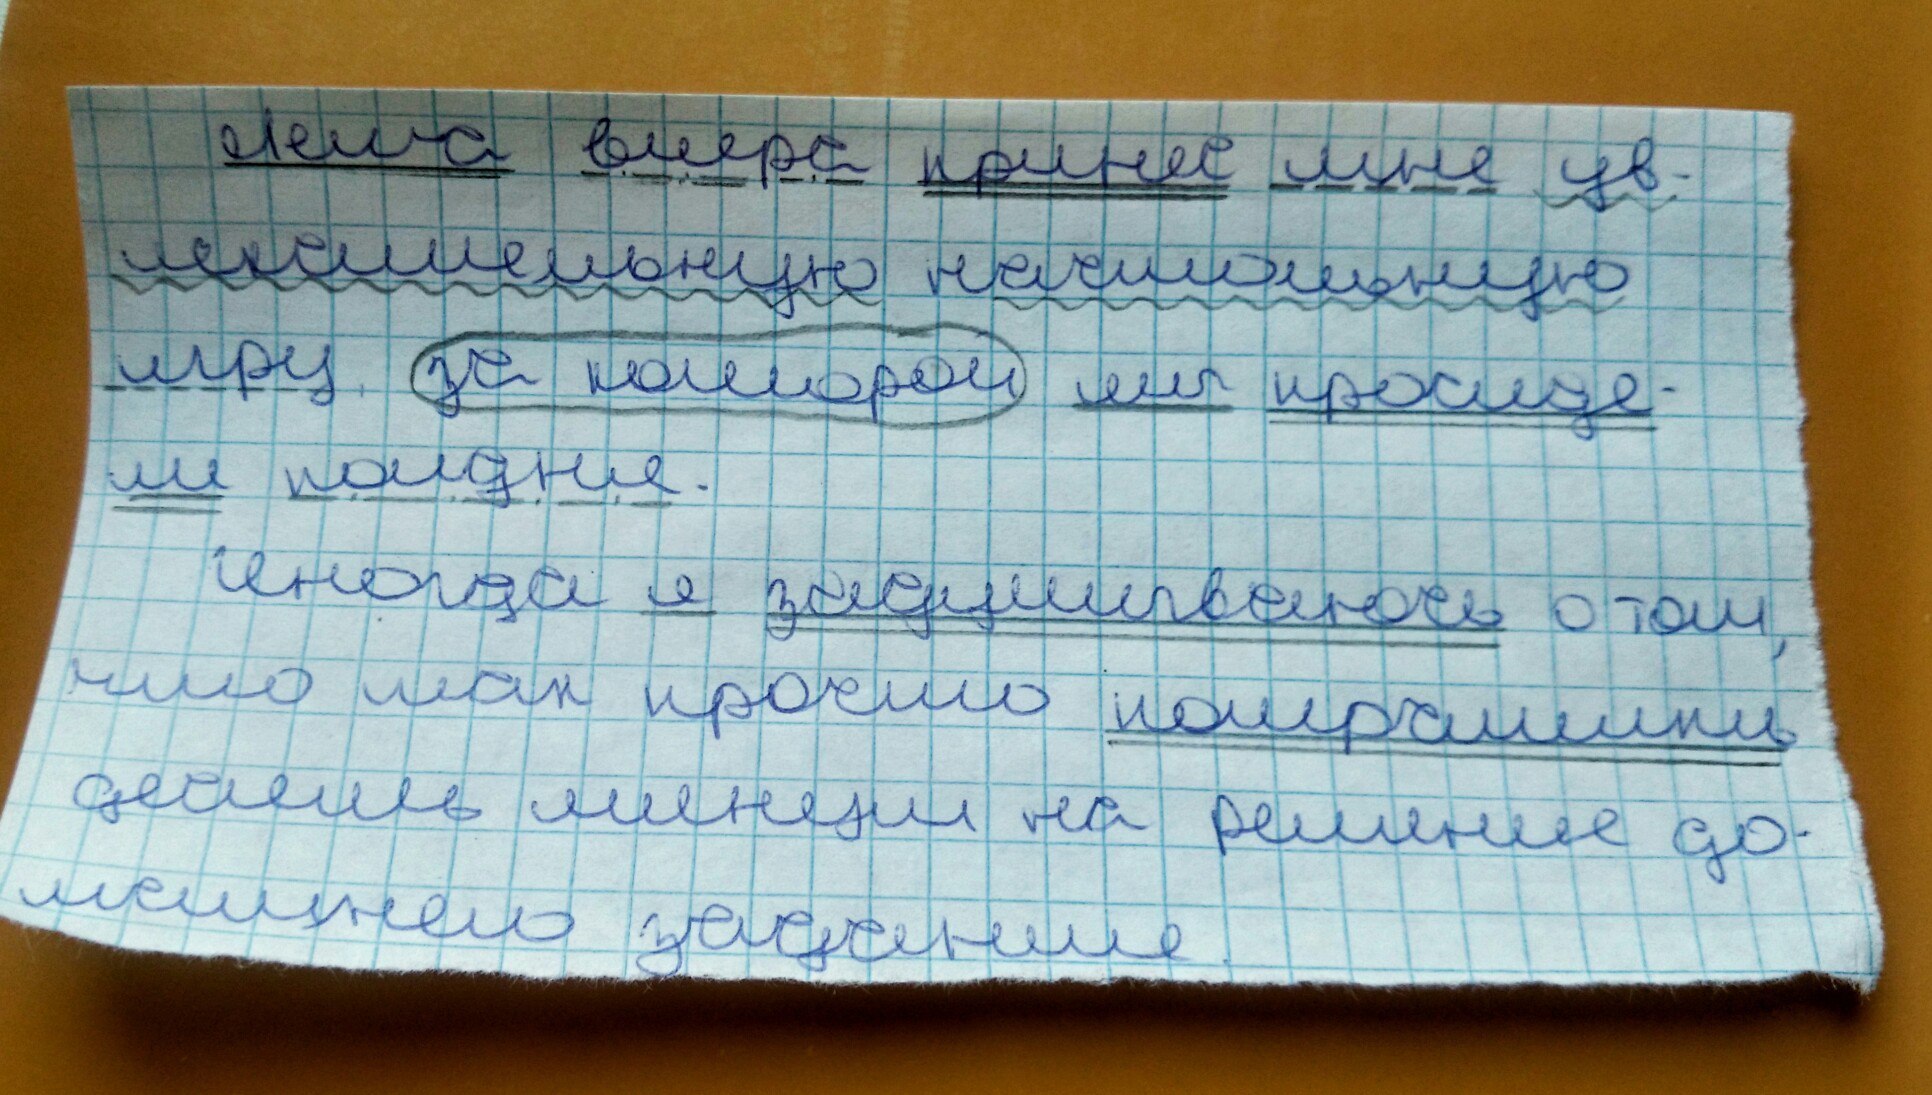 Леша вчера принес мне ув-
лекательную настольную
игру, за которой мы просиде-
ли полдня.
Иногда я задумываюсь о том,
что так просто потратить
десять минут на решение до-
машнего задания.